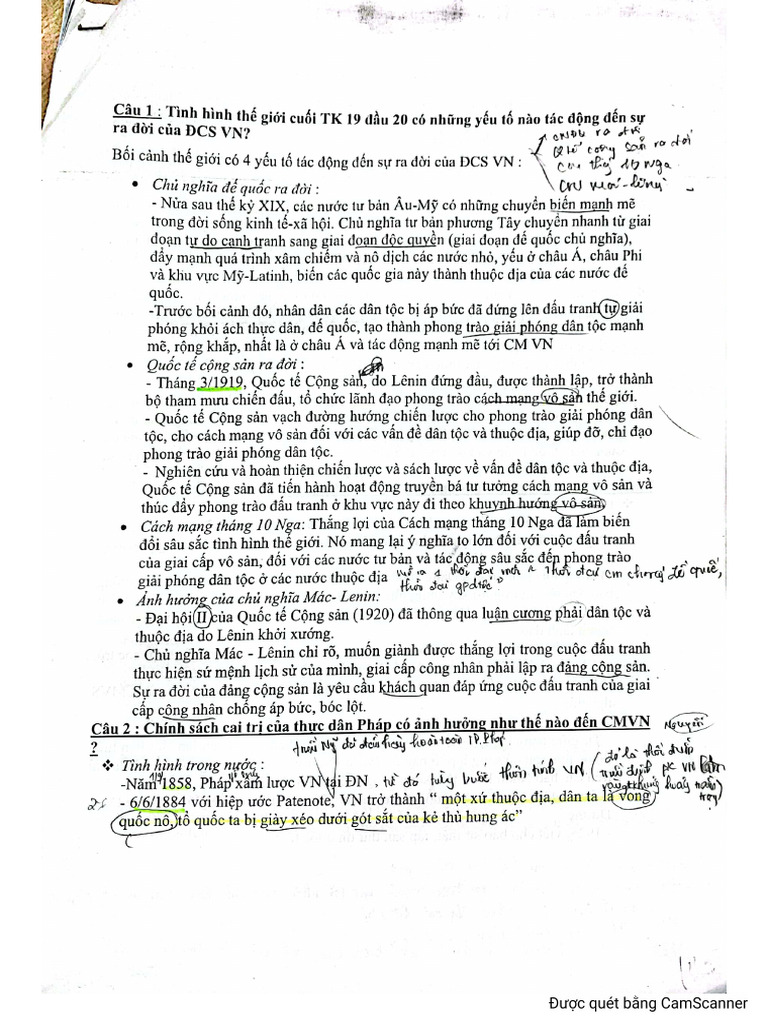 Câu 1 : Tình hình thế giới cuối TK 19 đầu 20 có những yếu tố nào tác động đến sự
ra đời của ĐCS VN?
CNĐQ ra đời
Qtế cộng sản ra đời
Bối cảnh thế giới có 4 yếu tố tác động đến sự ra đời của ĐCS VN :
CM tháng 10 Nga
CN Mác-Lênin
• Chủ nghĩa đế quốc ra đời :
- Nửa sau thế kỷ XIX, các nước tư bản Âu-Mỹ có những chuyển biến mạnh mẽ
trong đời sống kinh tế-xã hội. Chủ nghĩa tư bản phương Tây chuyển nhanh từ giai
đoạn tự do cạnh tranh sang giai đoạn độc quyền (giai đoạn đế quốc chủ nghĩa),
đẩy mạnh quá trình xâm chiếm và nô dịch các nước nhỏ, yếu ở châu Á, châu Phi
và khu vực Mỹ-Latinh, biến các quốc gia này thành thuộc địa của các nước đế
quốc.
-Trước bối cảnh đó, nhân dân các dân tộc bị áp bức đã đứng lên đấu tranh tự giải
phóng khỏi ách thực dân, đế quốc, tạo thành phong trào giải phóng dân tộc mạnh
mẽ, rộng khắp, nhất là ở châu Á và tác động mạnh mẽ tới CM VN
• Quốc tế cộng sản ra đời :
- Tháng 3/1919, Quốc tế Cộng sản, do Lênin đứng đầu, được thành lập, trở thành
bộ tham mưu chiến đấu, tổ chức lãnh đạo phong trào cách mạng vô sản thế giới.
- Quốc tế Cộng sản vạch đường hướng chiến lược cho phong trào giải phóng dân
tộc, cho cách mạng vô sản đối với các vấn đề dân tộc và thuộc địa, giúp đỡ, chỉ đạo
phong trào giải phóng dân tộc.
- Nghiên cứu và hoàn thiện chiến lược và sách lược về vấn đề dân tộc và thuộc địa,
Quốc tế Cộng sản đã tiến hành hoạt động truyền bá tư tưởng cách mạng vô sản và
thúc đẩy phong trào đấu tranh ở khu vực này đi theo khuynh hướng vô sản.
• Cách mạng tháng 10 Nga: Thắng lợi của Cách mạng tháng 10 Nga đã làm biến
đổi sâu sắc tình hình thế giới. Nó mang lại ý nghĩa to lớn đối với cuộc đấu tranh
của giai cấp vô sản, đối với các nước tư bản và tác động sâu sắc đến phong trào
giải phóng dân tộc ở các nước thuộc địa mở ra 1 thời đại mới " thời đại cm chống đế quốc,
thời đại gpdtộc"
• Ảnh hưởng của chủ nghĩa Mác- Lenin:
- Đại hội II của Quốc tế Cộng sản (1920) đã thông qua luận cương phải dân tộc và
thuộc địa do Lênin khởi xướng.
- Chủ nghĩa Mác - Lênin chỉ rõ, muốn giành được thắng lợi trong cuộc đấu tranh
thực hiện sứ mệnh lịch sử của mình, giai cấp công nhân phải lập ra đảng cộng sản.
Sự ra đời của đảng cộng sản là yêu cầu khách quan đáp ứng cuộc đấu tranh của giai
cấp cộng nhân chống áp bức, bóc lột.
Câu 2 : Chính sách cai trị của thực dân Pháp có ảnh hưởng như thế nào đến CMVN
?
❖ Tình hình trong nước :
-Năm 1858, Pháp xâm lược VN tại ĐN , từ đó từng bước thôn tính VN
- 6/6/1884 với hiệp ước Patenote, VN trở thành “ một xứ thuộc địa, dân ta là vong
quốc nô, tổ quốc ta bị giày xéo dưới gót sắt của kẻ thù hung ác”
Được quét bằng CamScanner